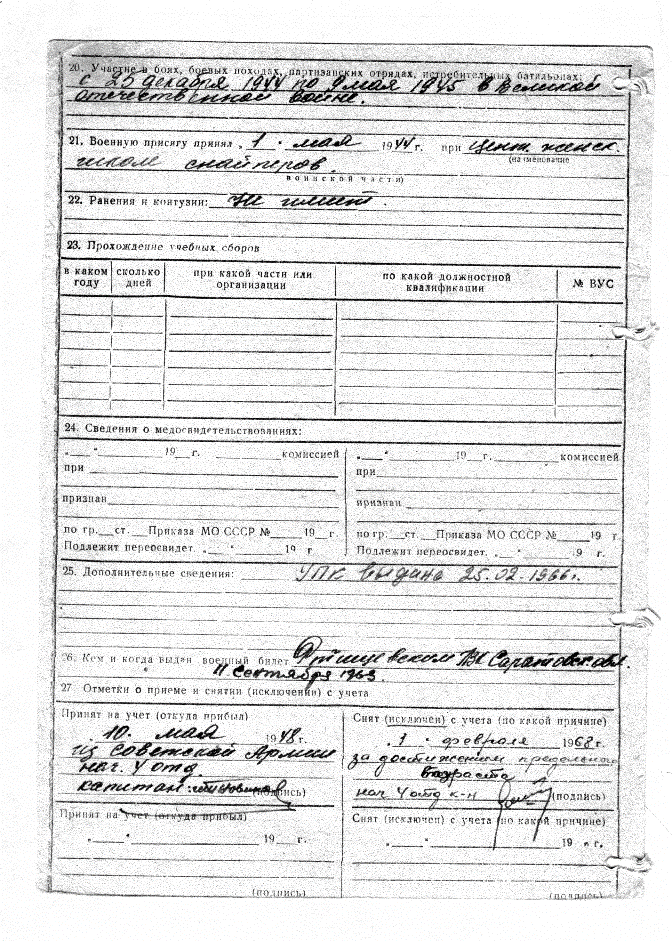 20. Участие в боях, боевых походах, партизанских отрядах, истребительных батальонах:
с 25 декабря 1944 по 9 мая 1945 в Великой
отечественной войне.
21. Военную присягу принял „ 1 " мая 1944 г. при Цент. женск.
(наименование
школе снайперов.
воинской части)
22. Ранения и контузии: Не имеет.
23. Прохождение учебных сборов
в каком году | сколько дней | при какой части или организации | по какой должностной квалификации | № ВУС
24. Сведения о медосвидетельствованиях:
„__"______19__г.______комиссией „__"______19__г.______комиссией
при при
признан признан
по гр.__ст.__Приказа МО СССР №____19__г. по гр.__ст.__Приказа МО СССР №____19 г
Подлежит переосвидет. „__"____19 г Подлежит переосвидет. „__"____9 г.
25. Дополнительные сведения: УПК выдана 25.02-1966г.
26. Кем и когда выдан военный билет Ртищевском ВК Саратовск обл.
11 Сентября 1963
27 Отметки о приеме и снятии (исключении) с учета
Принят на учет (откуда прибыл)
„ 10. мая 1948 г.
из Советской Армии
нач. 4 отд
капитан: (подпись)
Снят (исключен) с учета (по какой причине)
„ 1 " февраля 1968 г.
за достижением предельного
возраста
нач 4 отд к-н (подпись)
Принят на учет (откуда прибыл)
„__"______19__г.
(подпись)
Снят (исключен) с учета (по какой причине)
„__"______19 г.
(подпись)